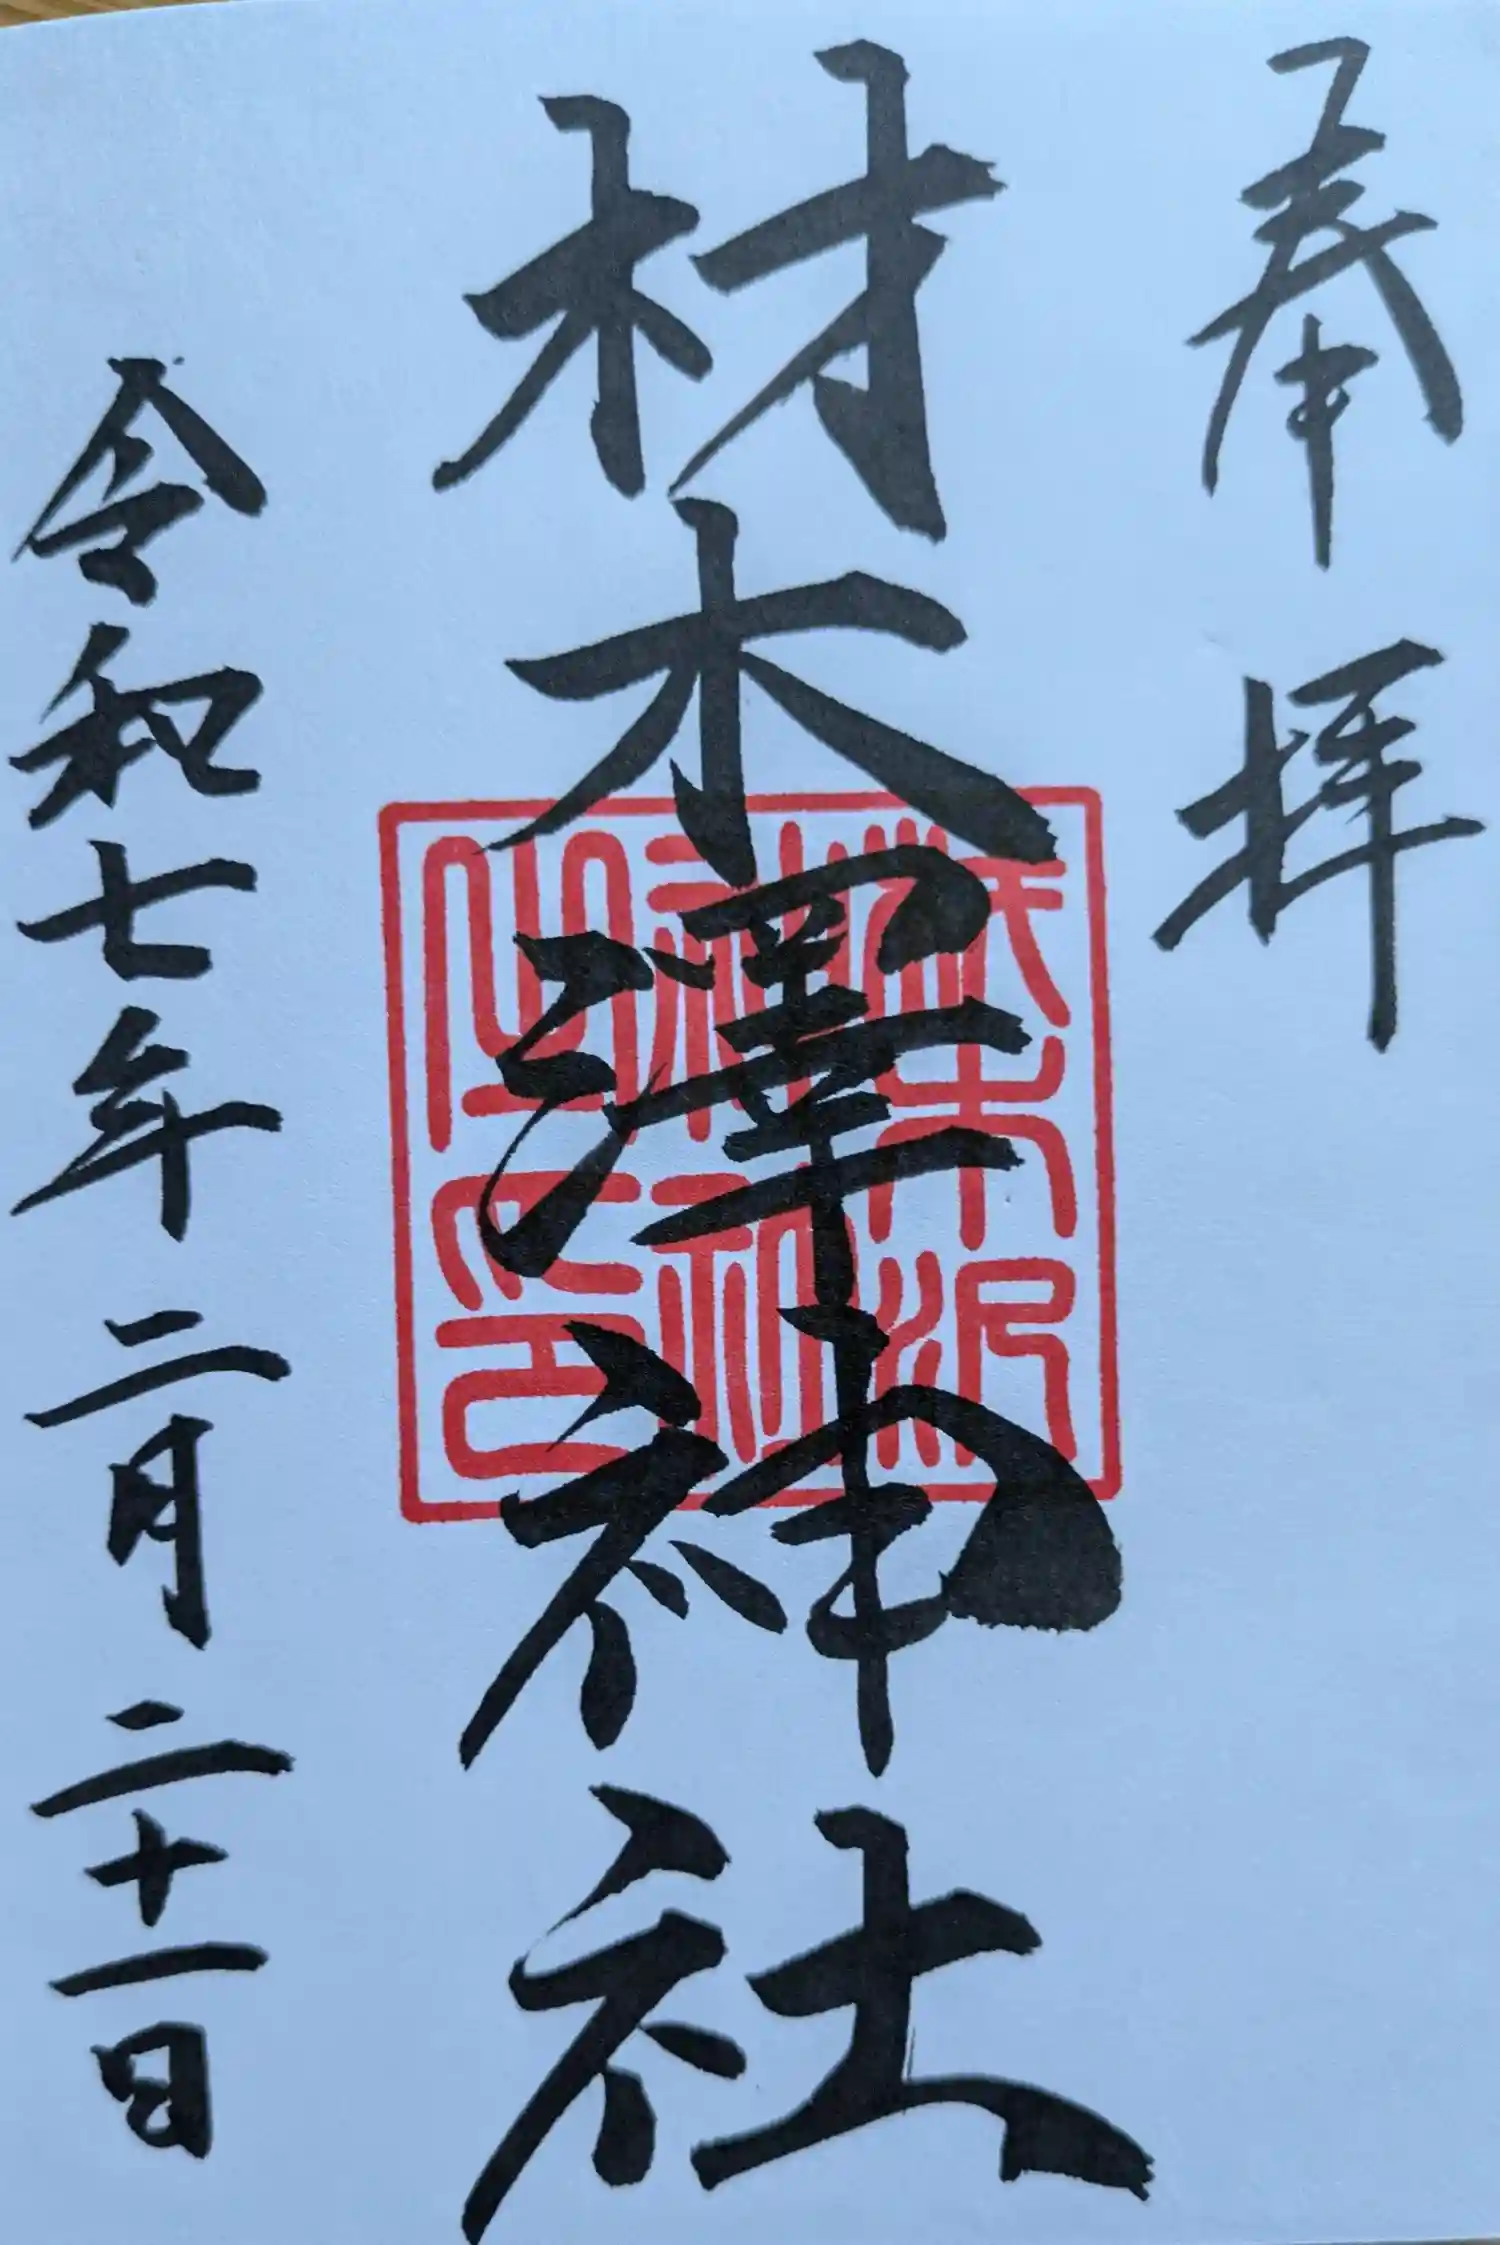 奉拝
材木澤神社
木沢
神社
之印
令和七年二月二十一日